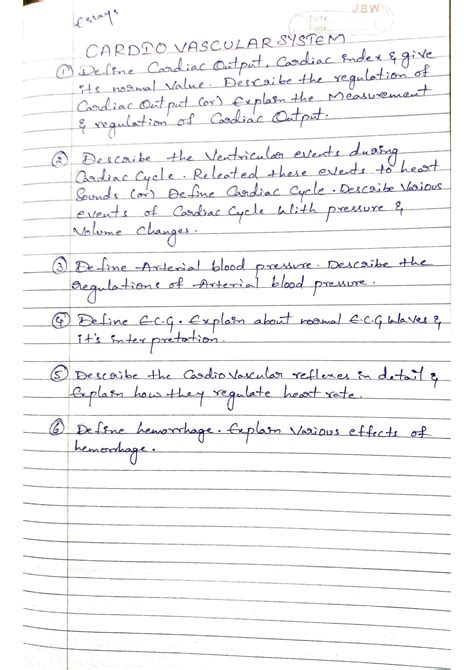 Essays
JBW
Date
Page
CARDIO VASCULAR SYSTEM
① Define Cardiac Output, Cardiac index & give
its normal Value. Describe the regulation of
Cardiac Output (or) Explain the Measurement
& regulation of Cardiac Output.
② Describe the Ventricular events during
Cardiac Cycle. Releated these events to heart
Sounds (or) Define Cardiac Cycle. Describe Various
events of Cardiac Cycle With pressure &
Volume Changes.
③ Define Arterial blood pressure. Describe the
regulations of Arterial blood pressure.
④ Define E.C.G. Explain about normal E.C.G Waves &
it's interpretation.
⑤ Describe the Cardio Vascular reflexes in detail &
Explain how they regulate heart rate.
⑥ Define hemorrhage. Explain Various effects of
hemorrhage.